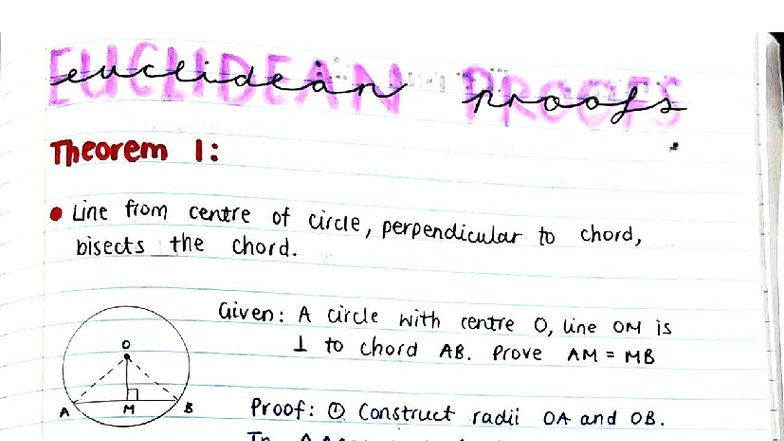 EUCLIDEAN PROOFS
euclidean proofs
Theorem 1:
• Line from centre of circle, perpendicular to chord,
bisects the chord.
Given: A circle with centre O, line OM is
⊥ to chord AB. Prove AM = MB
O
A M B
Proof: ① Construct radii OA and OB.
In